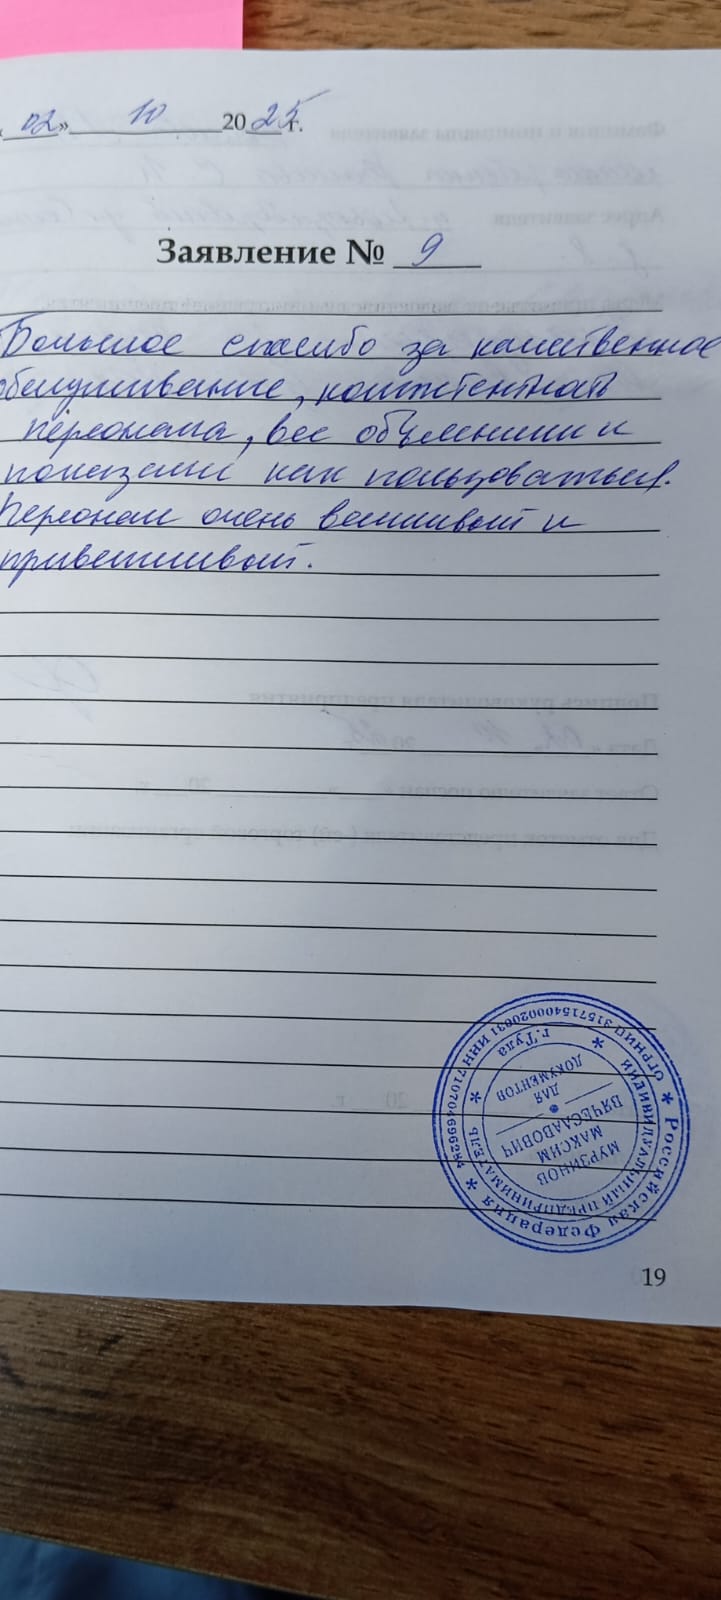 «02» 10 2025 г.
Заявление № 9
Большое спасибо за качественное
обслуживание, компетентность
персонала, все объяснили и
показали как пользоваться.
Персонал очень вежливый и
приветливый.
Российская Федерация
ИНДИВИДУАЛЬНЫЙ ПРЕДПРИНИМАТЕЛЬ
г. Тула
МУРЗИНОВ
МАКСИМ
ВЯЧЕСЛАВОВИЧ
ДЛЯ
ДОКУМЕНТОВ
19